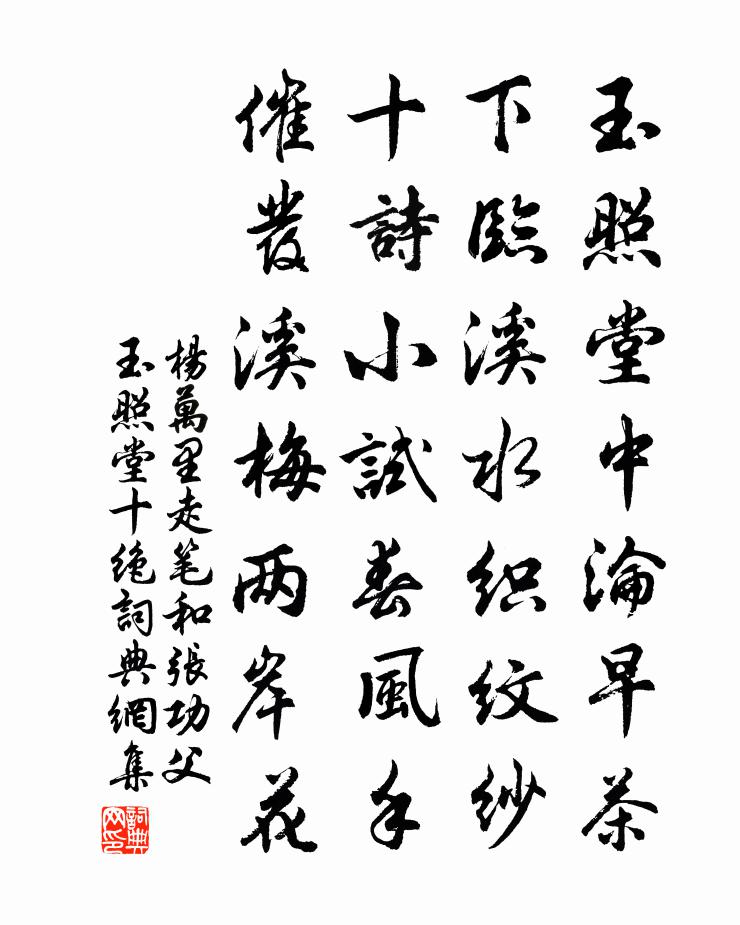 玉照堂中淪早茶
下臨溪水织紋紗
十詩小試春風手
催發溪梅两岸花
楊萬里走笔和張功父
玉照堂十绝詞典網集
詞典网印